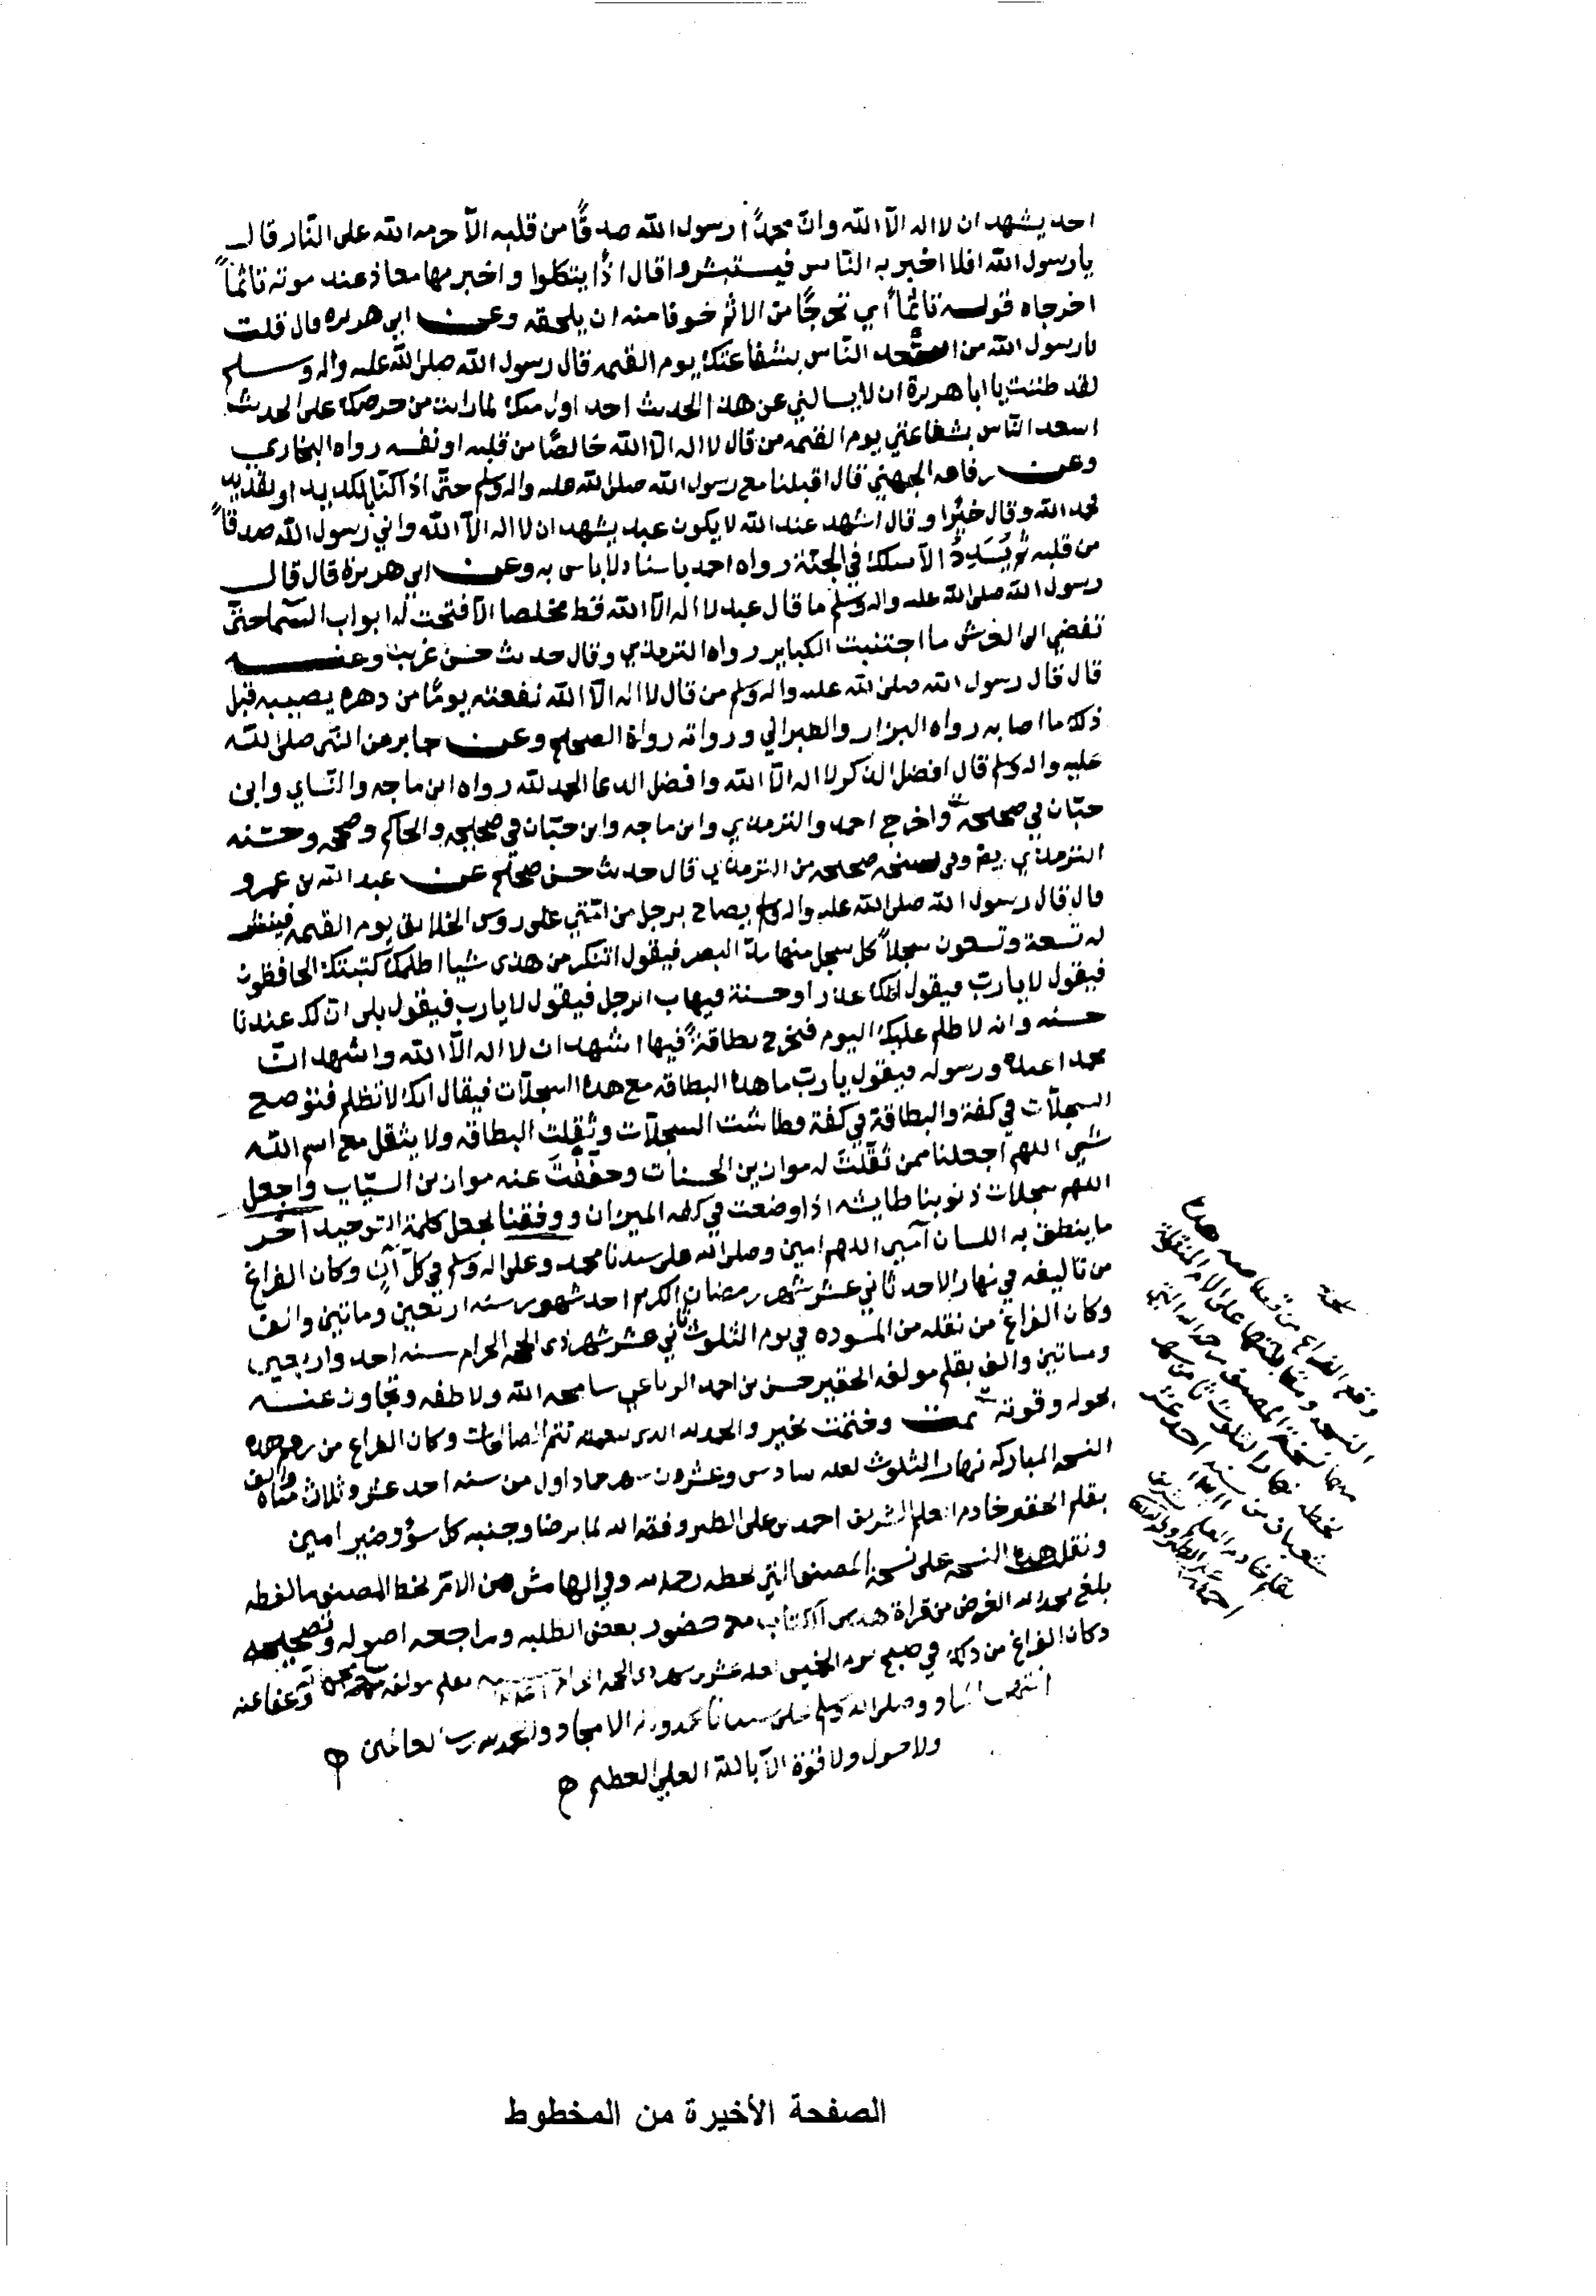 احد يشهد ان لا اله الّا الله وانّ محمدًا رسول الله صدقًا من قلبه الّا حرمه الله على النّار قال
يا رسول الله افلا اخبر به النّاس فيستبشروا قال اذًا يتكلوا واخبر بها معاذ عند موته تاثمًا
اخرجاه قوله تاثمًا أي تحرجًا من الاثم خوفا منه ان يلحقه وعن ابي هريره قال قلت
يا رسول الله من اسعد النّاس بشفاعتك يوم القيمه قال رسول الله صلى الله عليه واله وسلم
لقد ظننت يا ابا هريرة ان لا يسالني عن هذا الحديث احد اول منك لما رايت من حرصك على الحديث
اسعد النّاس بشفاعتي يوم القيمه من قال لا اله الّا الله خالصًا من قلبه او نفسه رواه البخاري
وعن رفاعه الجهني قال اقبلنا مع رسول الله صلى الله عليه واله وسلم حتّى اذا كنّا بالكديد او بقديد
فحمد الله وقال خيرًا وقال اشهد عند الله لا يكون عبد يشهد ان لا اله الّا الله واني رسول الله صدقًا
من قلبه ثم يُسَدِدُ الّا سلك في الجنّة رواه احمد باسناد لا باس به وعن ابي هريرة قال قال
رسول الله صلى الله عليه واله وسلم ما قال عبد لا اله الّا الله قط مخلصا الّا فتحت له ابواب السّما حتّى
تفضي الى العرش ما اجتنبت الكباير رواه الترمذي وقال حديث حسن غريب وعنه
قال قال رسول الله صلى الله عليه واله وسلم من قال لا اله الّا الله نفعته يومًا من دهره يصيبه قبل
ذلك ما اصابه رواه البزار والطبراني ورواته رواة الصحيح وعن جابر عن النبي صلى الله
عليه واله وسلم قال افضل الذكر لا اله الّا الله وافضل الدعا الحمد لله رواه ابن ماجه والنّساي وابن
حبّان في صحيحه واخرج احمد والترمذي وابن ماجه وابن حبّان في صحيحه والحاكم وصححه وحسّنه
الترمذي وفي نسخه صحيحه من الترمذي قال حديث حسن صحيح عن عبد الله بن عمرو
قال قال رسول الله صلى الله عليه واله وسلم يصاح برجل من امّتي على روس الخلايق يوم القيمه فينشر
له تسعة وتسعون سجلًا كل سجل منها مدّ البصر فيقول اتنكر من هذى شيا اظلمك كتبتك الحافظون
فيقول لا يا ربّ فيقول الك عذر او حسنة فيهاب الرجل فيقول لا يا رب فيقول بلى ان لك عندنا
حسنه وانه لا ظلم عليك اليوم فتخرج بطاقةً فيها اشهد ان لا اله الّا الله واشهد انّ
محمدا عبده ورسوله فيقول يا ربّ ما هذه البطاقه مع هذه السجلّات فيقال انك لا تظلم فتوضع
السجلّات في كفة والبطاقة في كفة فطاشت السجلّات وثقلت البطاقه ولا يثقل مع اسم الله
شي اللهم اجعلنا ممن ثَقَلَتْ له موازين الحسنات وخفّفْتَ عنه موازين السيّيات واجعل
اللهم سجلات ذنوبنا طايشه اذا وضعت في كفه الميزان ووفقنا لجعل كلمة التوحيد اخر
ما ينطق به اللسان آمين اللهم امين وصلى الله على سيدنا محمد وعلى اله وسلم في كلّ آن وكان الفراغ
من تاليفه في نهار الاحد ثاني عشر شهر رمضان الكريم احد شهور سنه اربعين وماتين والف
وكان الفراغ من نقله من المسّوده في يوم الثلوث ثاني عشر شهر ذى الحجه الحرام سنه احد واربعين
وماتين والف بقلم مولفه الحقير حسن بن احمد الرباعي سامحه الله ولا طفه وتجاوز عنه
بحوله وقوته تمت وختمت بخير والحمد لله الذى بنعمته تتم الصالحات وكان الفراغ من رقم هذه
النسخه المباركه نهار الثلوث لعله سادس وعشرون شهر جماد اول من سنه احد عشر وثلاث مائه والف
بقلم الحقير خادم العلم الشريف احمد بن على الطير وفقه الله لما يرضا وجنبه كل سؤ وضير امين
ونقل هذه النسخه على نسخة المصنف التي بخطه رحمه الله وفي الهامش من الاثر بخط المصنف ما لفظه
بلغ بحمد الله الغرض من قراة هذى الكتاب مع حضور بعض الطلبه ومراجعه اصوله وتصحيحه
وكان الفراغ من ذلك في صبح يوم الخميس احد عشر شهر ذى الحجه الحرام بقلم مولفه وعفا عنه
انتهى وصلى الله وسلم على سيدنا محمد واله الامجاد والحمد لله رب العالمين
ولا حول ولا قوّة الّا بالله العلي العظيم
وقع الفراغ من قصاصه هذه
النسخه ومقابلتها على الام المنقولة
منها نسخة المصنف رحمه الله التي
بخطه نهار الثلوث من شهر
شعبان من سنه احد عشر
بقلم خادم العلم الشريف
احمد بن على الطير وفقه الله
الصفحة الأخيرة من المخطوط